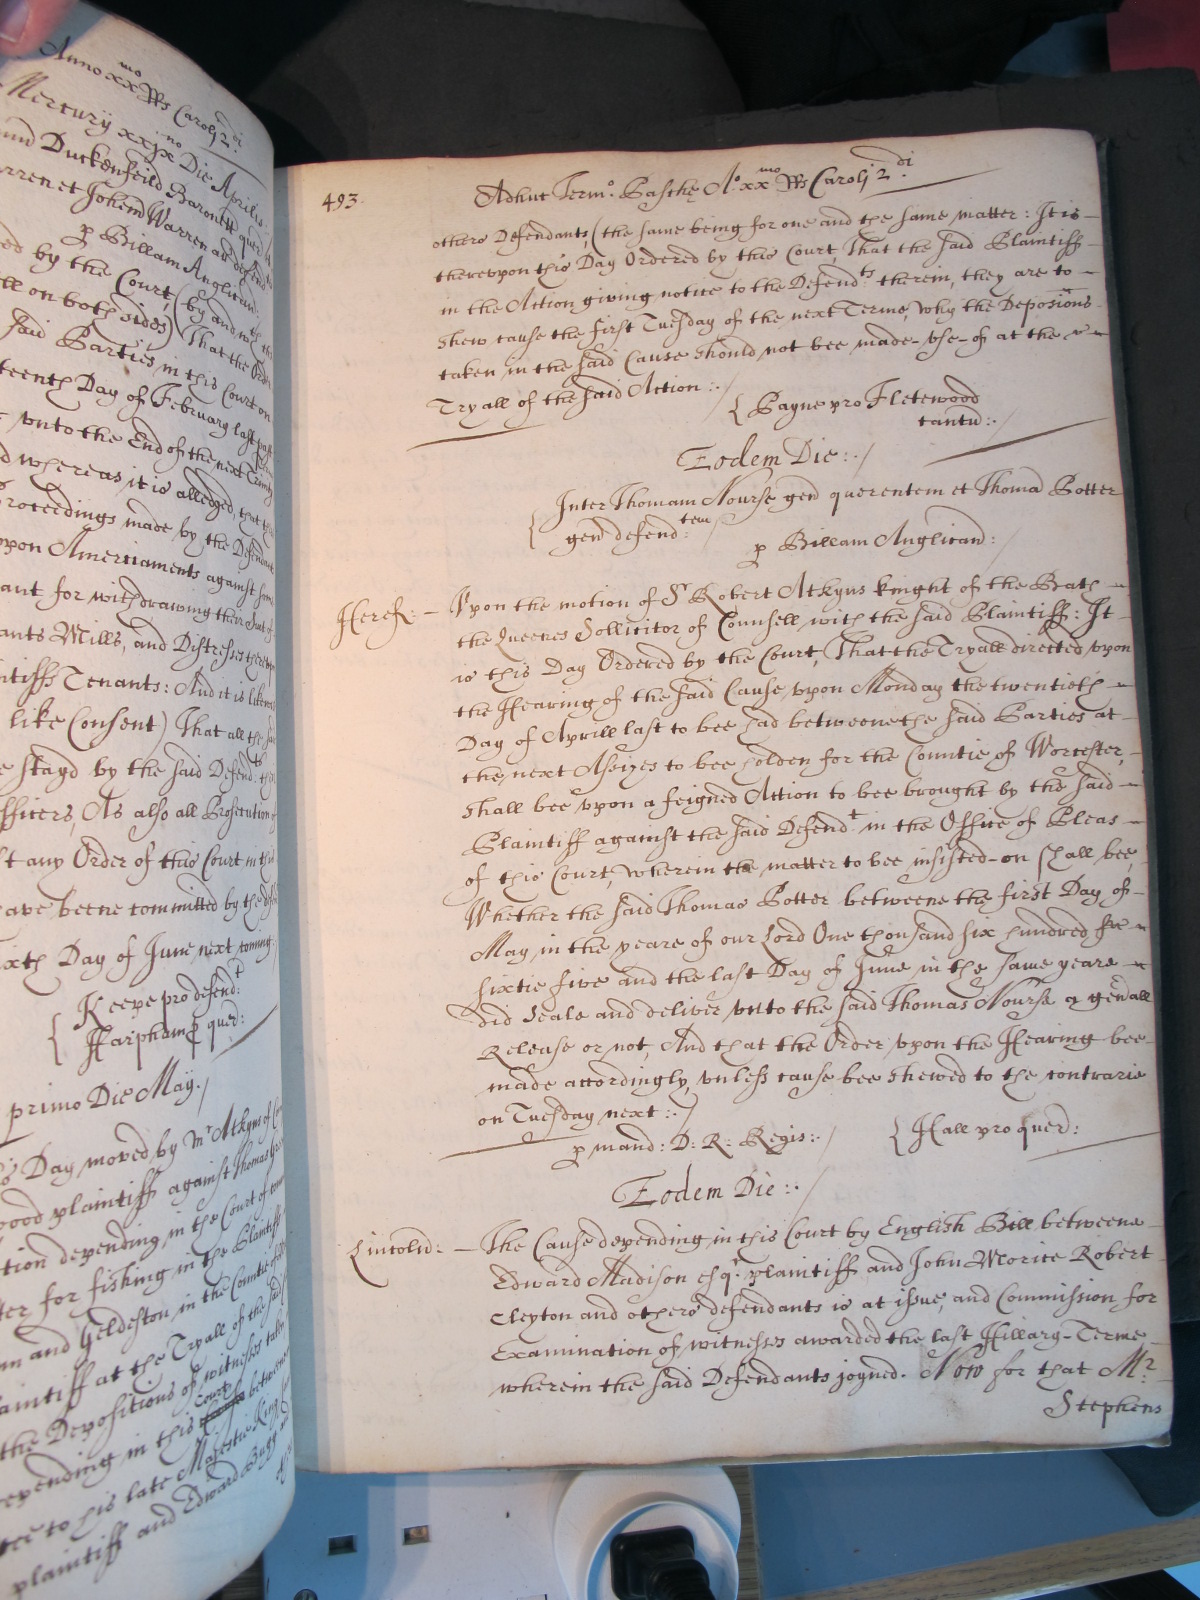 Anno xx^mo R̃Rs Carolj 2^di
Mercurij xxjx^no Die Aprilis
Duckenfeild Baronett quer
et Johem Warren ar defend
p Billam Anglicanu
by the Court, (by and with the
on both sides) That the Order
said Parties in this Court on
Day of February last past
vnto the End of the next Trinity
whereas it is alledged, that the
Proceedings made by the Defendant
vpon Amerciaments against some
for withdrawing their suit of
Mills, and Distresses therevpon
Tenants: And it is likewise
like Consent) That all the said
stayd by the said Defend^ts: the
Officers, As also all Prosecution of
any Order of this Court in the
beene committed by the
Day of June next coming
Keepe pro defend^t:
Harpham p quer:
primo Die May./
Day moved by m^r Atkyns of
plaintiff against Thomas
depending in the Court of
for fishing in the Plaintiff
and Geldeston in the Countie of
at the Tryall of the said
the Depositions of witnesses taken
depending in this Court betweene
to his late Majestie King
plaintiff and Edward Bugg and
493.
Adhuc Term^o: Paschę A^o: xx^mo R̃Rs Carolj 2^di:
others Defendants, (the same being for one and the same matter: It is
therevpon this Day Ordered by this Court, That the said Plaintiff
in the Action giving notice to the Defend^ts: therein, they are to
shew cause the first Tuesday of the next Terme, why the Deposic̃ons
taken in the said Cause should not bee made-vse-of at the
Tryall of the said Action:./
{ Payne pro Fletewood
tantũ:./
Eodem Die:./
{ Inter Thomam Nourse geñ querentem et Thomã Potter
geñ defend:^tem
p Billam Anglicanã:
Heref: – Vpon the motion of S^r Robert Atkyns knight of the Bath
the Queenes Sollicitor of Counsell with the said Plaintiff: It
is this Day Ordered by the Court, That the Tryall directed vpon
the Hearing of the said Cause, vpon Monday the twentieth
Day of Aprill last to bee had betweene the said Parties at
the next Assizes to bee holden for the Countie of Worcester,
shall bee vpon a feigned Action to bee brought by the said
Plaintiff against the said Defend^t in the Office of Pleas
of this Court, wherein the matter to bee insisted-on shall bee,
Whether the said Thomas Potter betweene the first Day of
May in the yeare of our Lord One thousand six hundred
sixtie five and the last Day of June in the same yeare
did Seale and deliver vnto the said Thomas Nourse a geñall
Release or not, And that the Order vpon the Hearing bee
made accordingly, vnless cause bee shewed to the contrarie
on Tuesday next:./
p mand: D: R: Regis:./ { Hall pro quer:
Eodem Die:./
Lincolñ: – The Cause depending in this Court by English Bill betweene
Edward Madison esq^r: plaintiff and John Morice Robert
Clepton and others defendants is at issue, and Commission for
Examination of witnesses awarded the last Hillary-Terme
wherein the said Defendants joyned. Now for that M^r:
Stephens